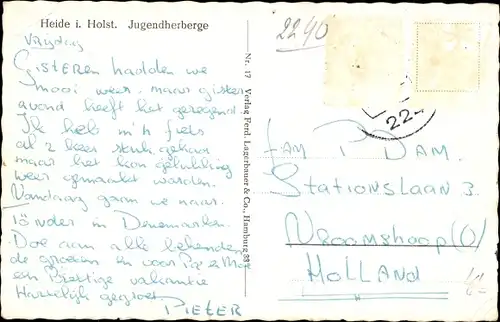 Heide i. Holst. Jugendherberge
Vrijdag
Gisteren hadden we
mooi weer, maar gister
avond heeft het geregend.
Ik heb m'n fiets
al 2 keer stuk gehad
maar het kon gelukkig
weer gemaakt worden.
Vandaag gaan we naar
Tönder in Denemarken.
Doe aan alle bekenden
de groeten en voor Pa en Moe
een Prettige vakantie
Hartelijk gegroet
PIETER
Nr. 17 Verlag Ferd. Lagerbauer & Co., Hamburg 33
2240
22
FAM P DAM.
Stationslaan 3
VROOMSHOOP (O)
HOLLAND